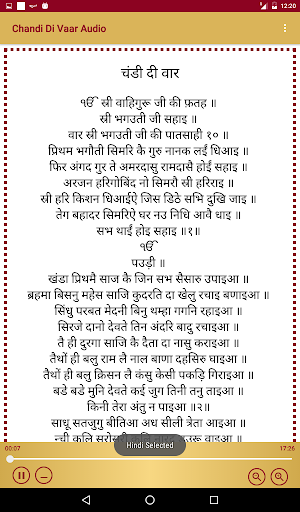 12:20
Chandi Di Vaar Audio
चंडी दी वार
ੴ स्री वाहिगुरू जी की फ़तह ॥
स्री भगउती जी सहाइ ॥
वार स्री भगउती जी की पातसाही १० ॥
प्रिथम भगौती सिमरि कै गुरु नानक लईं धिआइ ॥
फिर अंगद गुर ते अमरदासु रामदासै होईं सहाइ ॥
अरजन हरिगोबिंद नो सिमरौ स्री हरिराइ ॥
स्री हरि किशन धिआईऐ जिस डिठे सभि दुखि जाइ ॥
तेग बहादर सिमरिऐ घर नउ निधि आवै धाइ ॥
सभ थाईं होइ सहाइ ॥१॥
ੴ
पउड़ी ॥
खंडा प्रिथमै साज कै जिन सभ सैसारु उपाइआ ॥
ब्रहमा बिसनु महेस साजि कुदरति दा खेलु रचाइ बणाइआ ॥
सिंधु परबत मेदनी बिनु थम्हा गगनि रहाइआ ॥
सिरजे दानो देवते तिन अंदरि बादु रचाइआ ॥
तै ही दुरगा साजि कै दैता दा नासु कराइआ ॥
तैथों ही बलु राम लै नाल बाणा दहसिरु घाइआ ॥
तैथों ही बलु क्रिसन लै कंसु केसी पकड़ि गिराइआ ॥
बडे बडे मुनि देवते कई जुग तिनी तनु ताइआ ॥
किनी तेरा अंतु न पाइआ ॥२॥
साधू सतजुगु बीतिआ अध सीली त्रेता आइआ ॥
Hindi Selected
00:07
17:26